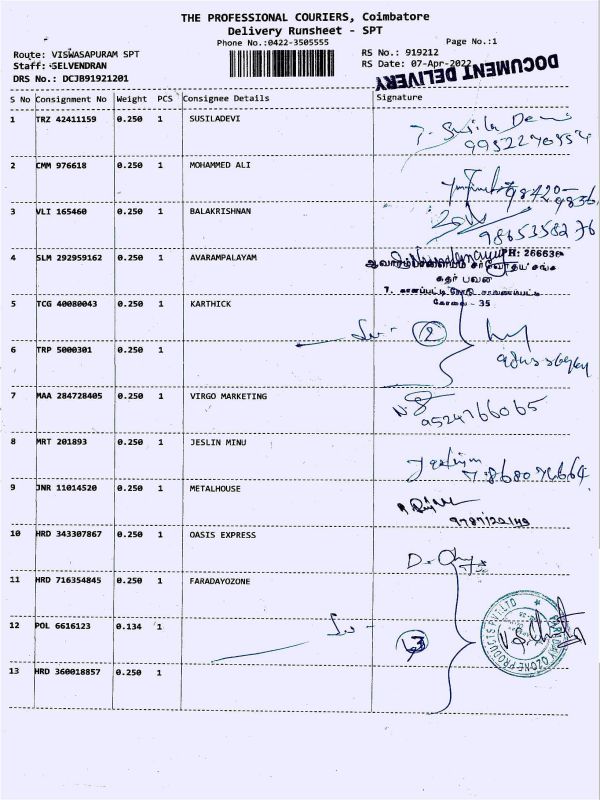 THE PROFESSIONAL COURIERS, Coimbatore
Delivery Runsheet - SPT
Phone No.:0422-3505555
Page No.:1
Route: VISWASAPURAM SPT
RS No.: 919212
Staff: SELVENDRAN
RS Date: 07-Apr-2022
DRS No.: DCJB91921201
DOCUMENT DELIVERY
S No Consignment No Weight PCS Consignee Details Signature
1 TRZ 42411159 0.250 1 SUSILADEVI
T. Susila Devi
2 CMM 976618 0.250 1 MOHAMMED ALI
98420-
3 VLI 165460 0.250 1 BALAKRISHNAN
9865358276
4 SLM 292959162 0.250 1 AVARAMPALAYAM
PH: 266636
ஆவாரம்பாளையம் சர்வோதய சங்க
கதர் பவன்
கோவை - 35
5 TCG 40080043 0.250 1 KARTHICK
2
6 TRP 5000301 0.250 1
7 MAA 284728405 0.250 1 VIRGO MARKETING
9524766065
8 MRT 201893 0.250 1 JESLIN MINU
9 JNR 11014520 0.250 1 METALHOUSE
9787122149
10 HRD 343307867 0.250 1 OASIS EXPRESS
11 HRD 716354845 0.250 1 FARADAYOZONE
FARADAY OZONE PRODUCTS PVT LTD
12 POL 6616123 0.134 1
3
13 HRD 360018857 0.250 1